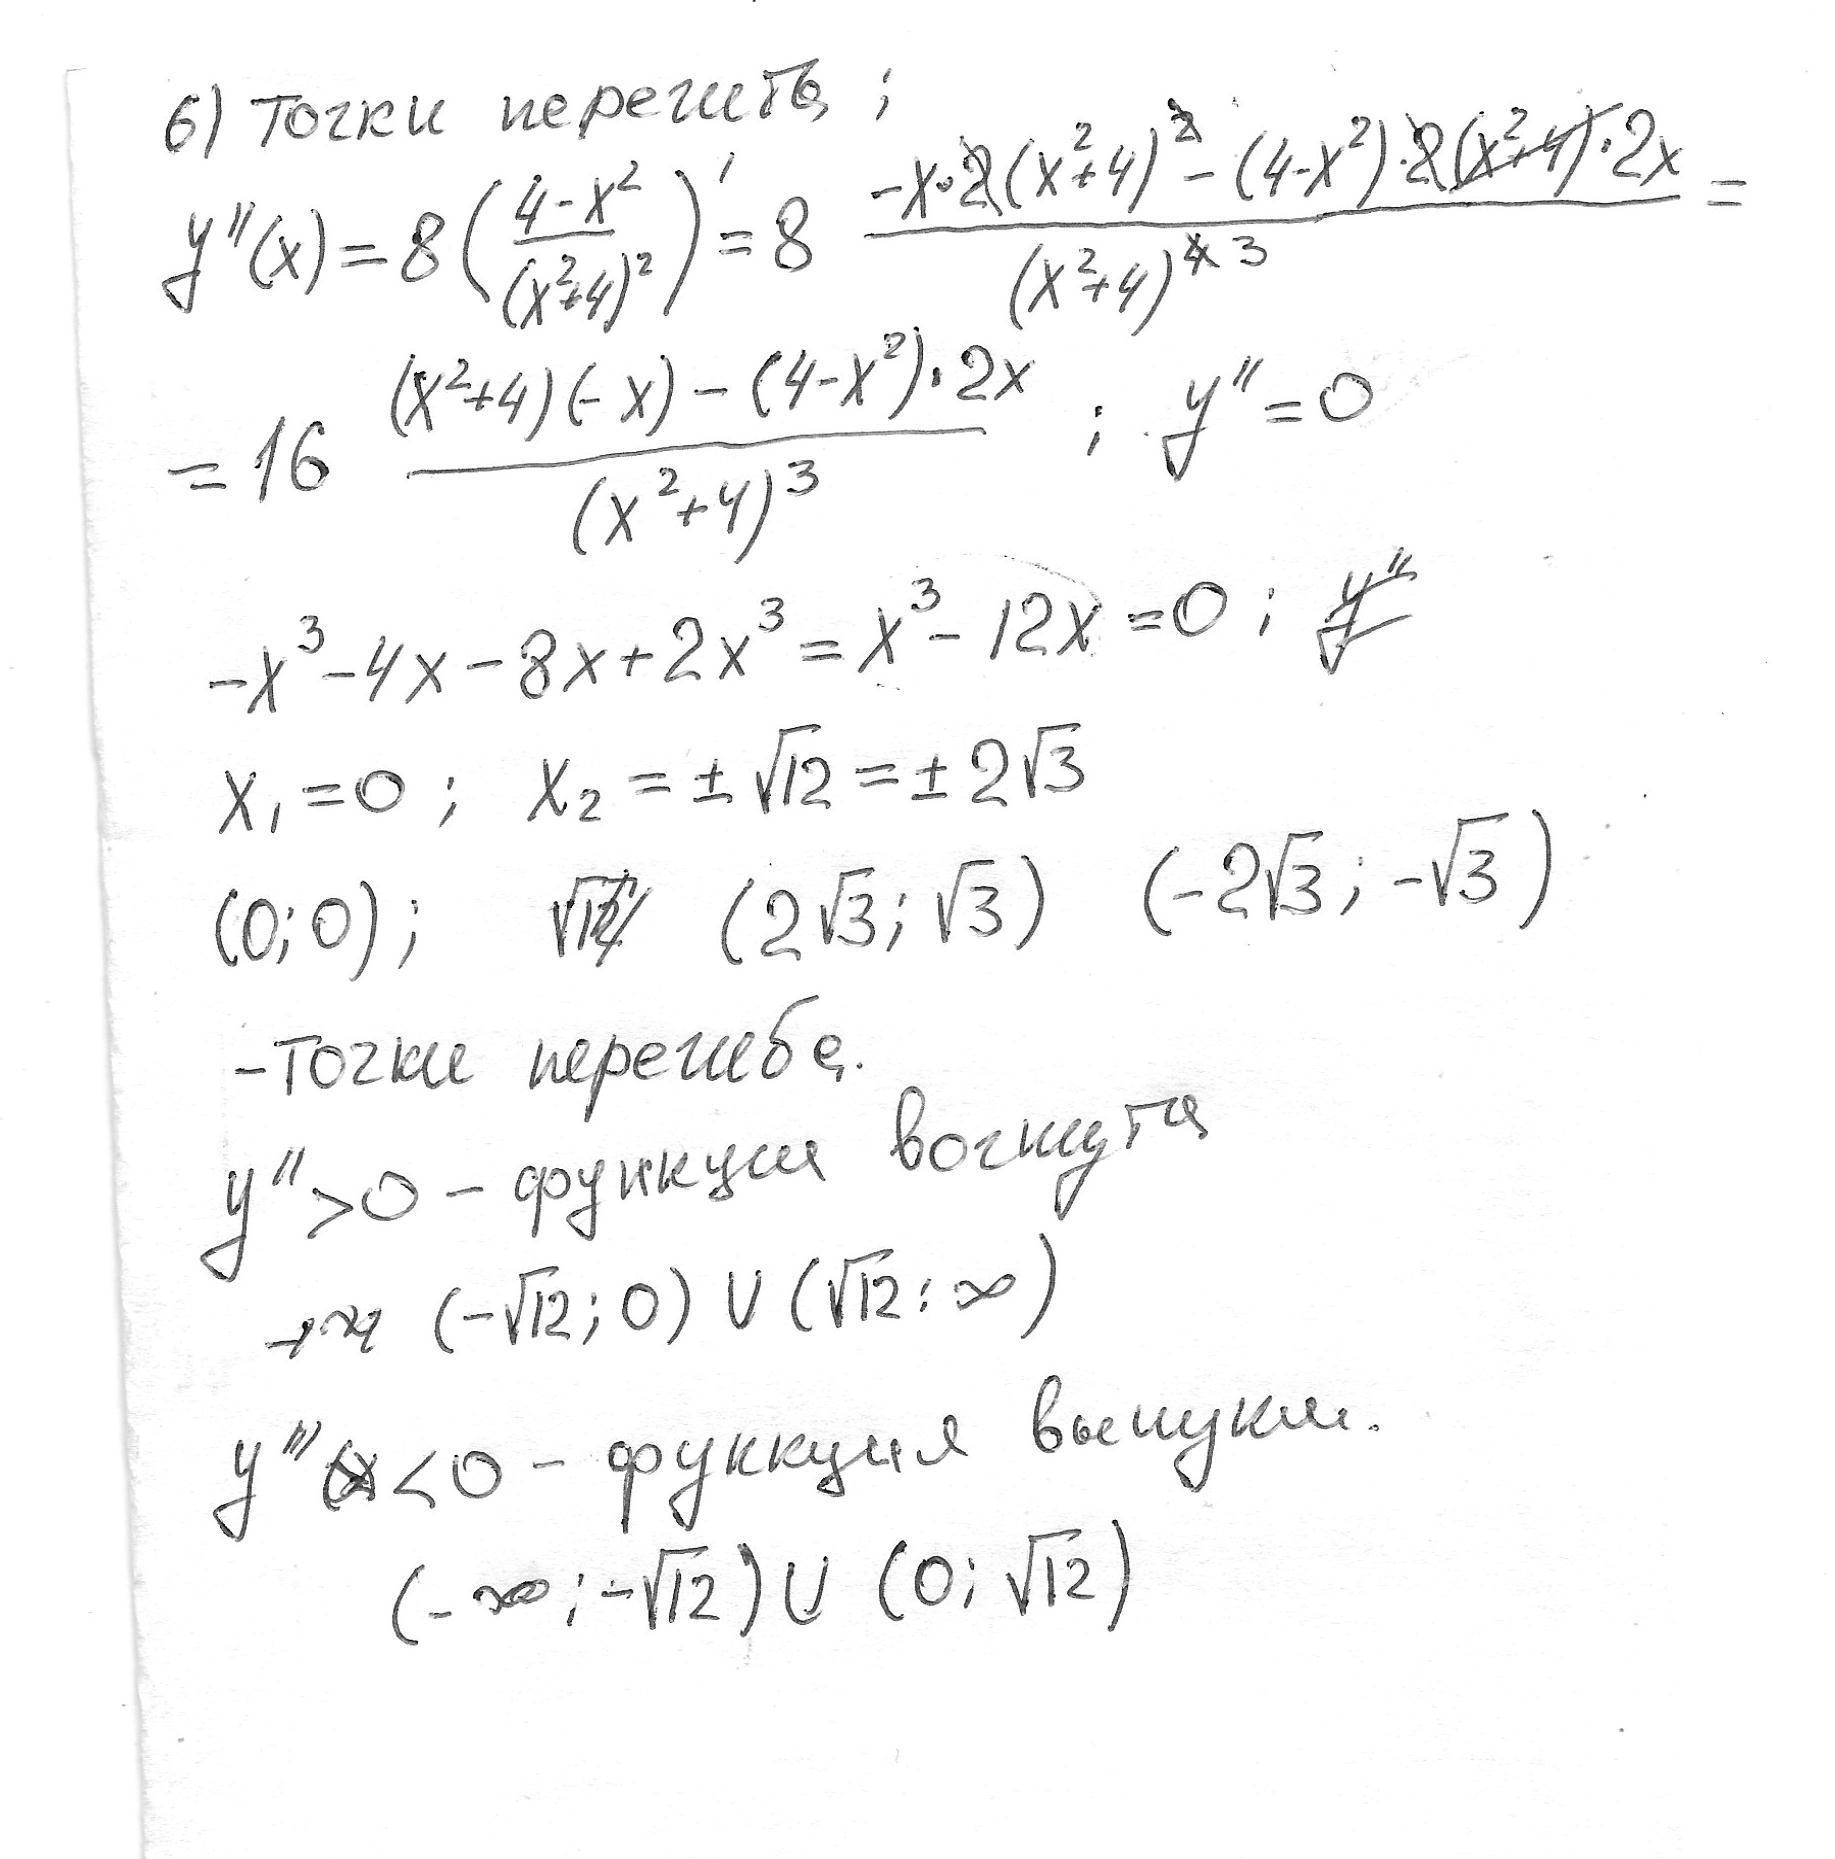 6) Точки перегиба;
y''(x) = 8 ( (4-x²)/(x²+4)² )' = 8 (-x·2(x²+4)² - (4-x²)·2(x²+4)·2x)/(x²+4)⁴ 3 =
= 16 ((x²+4)(-x) - (4-x²)·2x)/(x²+4)³ ; y'' = 0
-x³ - 4x - 8x + 2x³ = x³ - 12x = 0 ; y''
x₁ = 0 ; x₂ = ± √12 = ± 2√3
(0; 0) ; √12 (2√3; √3) (-2√3; -√3)
- точки перегиба.
y'' > 0 - функция вогнута
(-√12; 0) ∪ (√12; ∞)
y'' < 0 - функция выпукл.
(-∞; -√12) ∪ (0; √12)